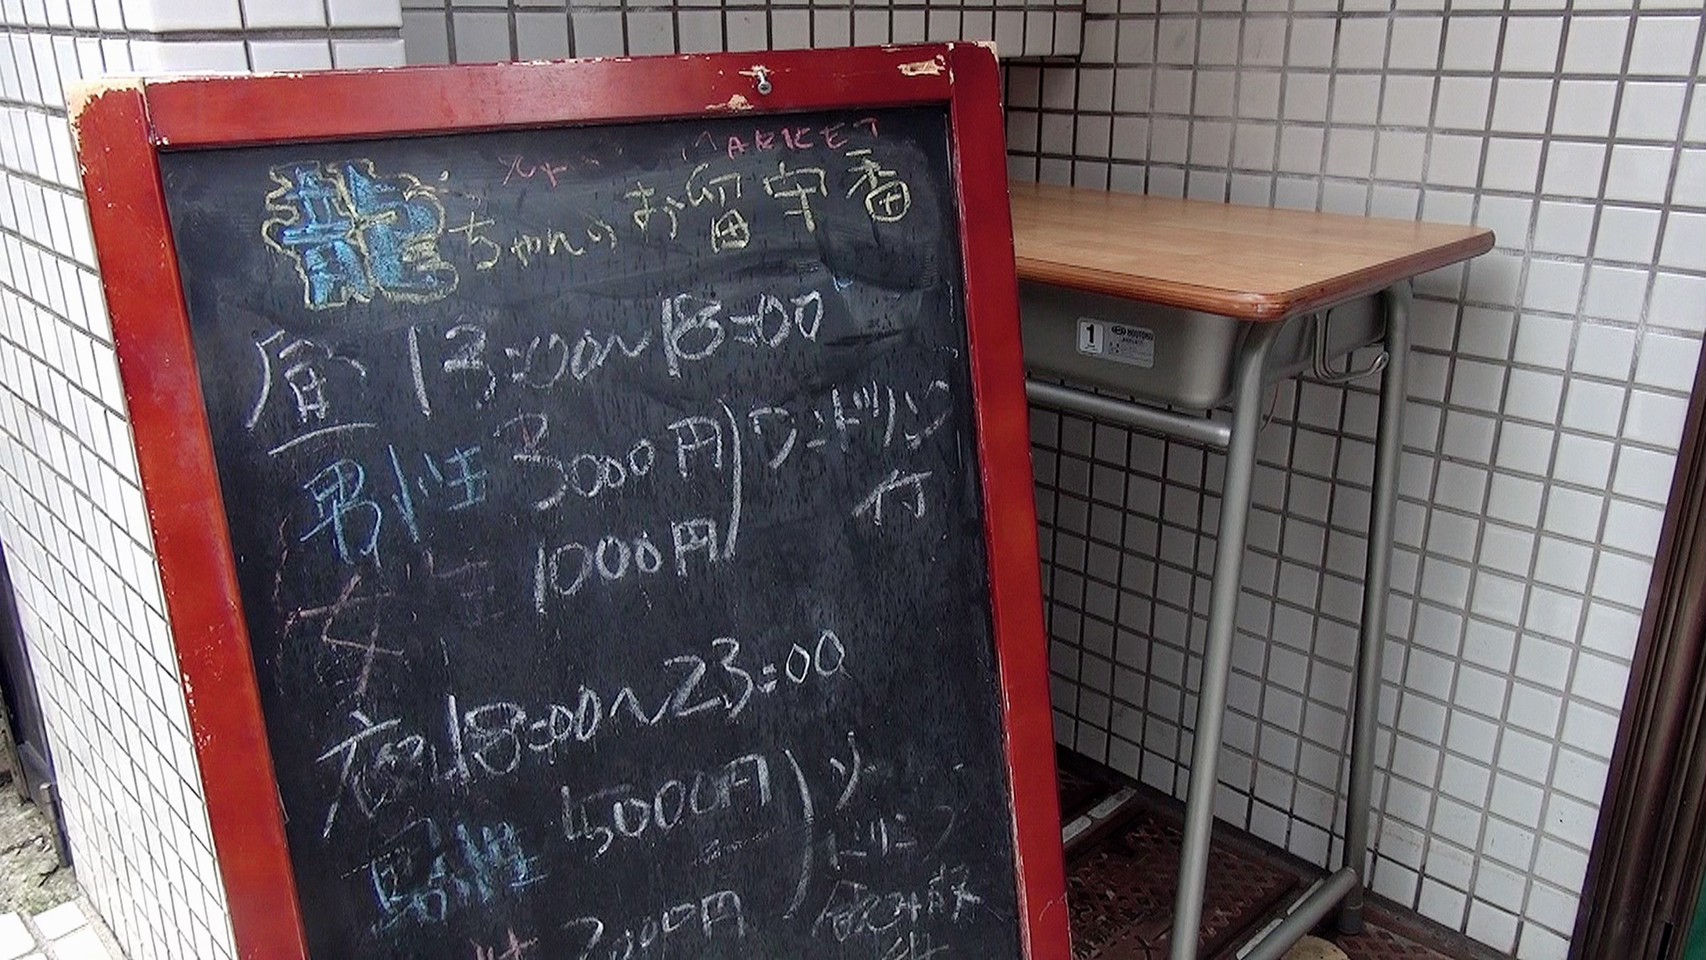 MARKET
龍ちゃんのお留守番
昼 13:00〜18:00
男性 3000円 ワンドリンク
付
女性 1000円
夜 18:00〜23:00
男性 5000円 ソフト
ドリンク
飲み放
性 2000円
1